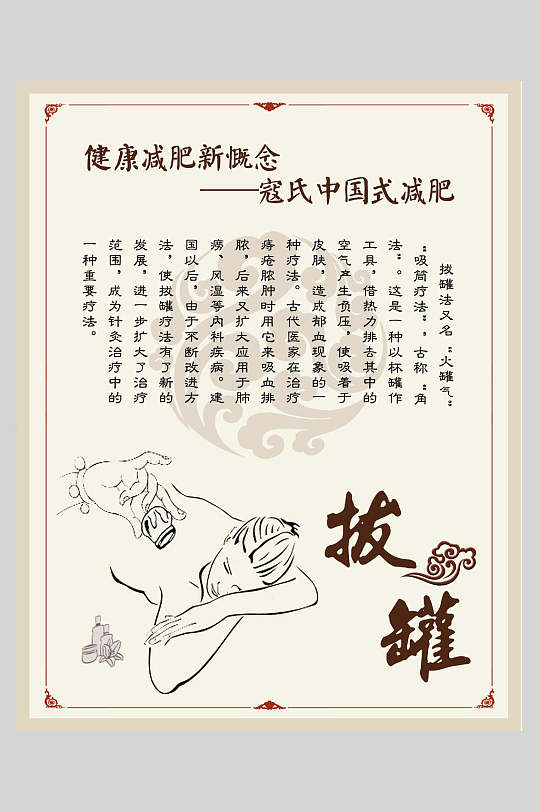 健康减肥新慨念
——寇氏中国式减肥
拔罐法又名“火罐气”
“吸筒疗法”，古称“角
法”。这是一种以杯罐作
工具，借热力排去其中的
空气产生负压，使吸着于
皮肤，造成郁血现象的一
种疗法。古代医家在治疗
疮疡脓肿时用它来吸血排
脓，后来又扩大应用于肺
痨、风湿等内科疾病。建
国以后，由于不断改进方
法，使拔罐疗法有了新的
发展，进一步扩大了治疗
范围，成为针灸治疗中的
一种重要疗法。
拔
罐